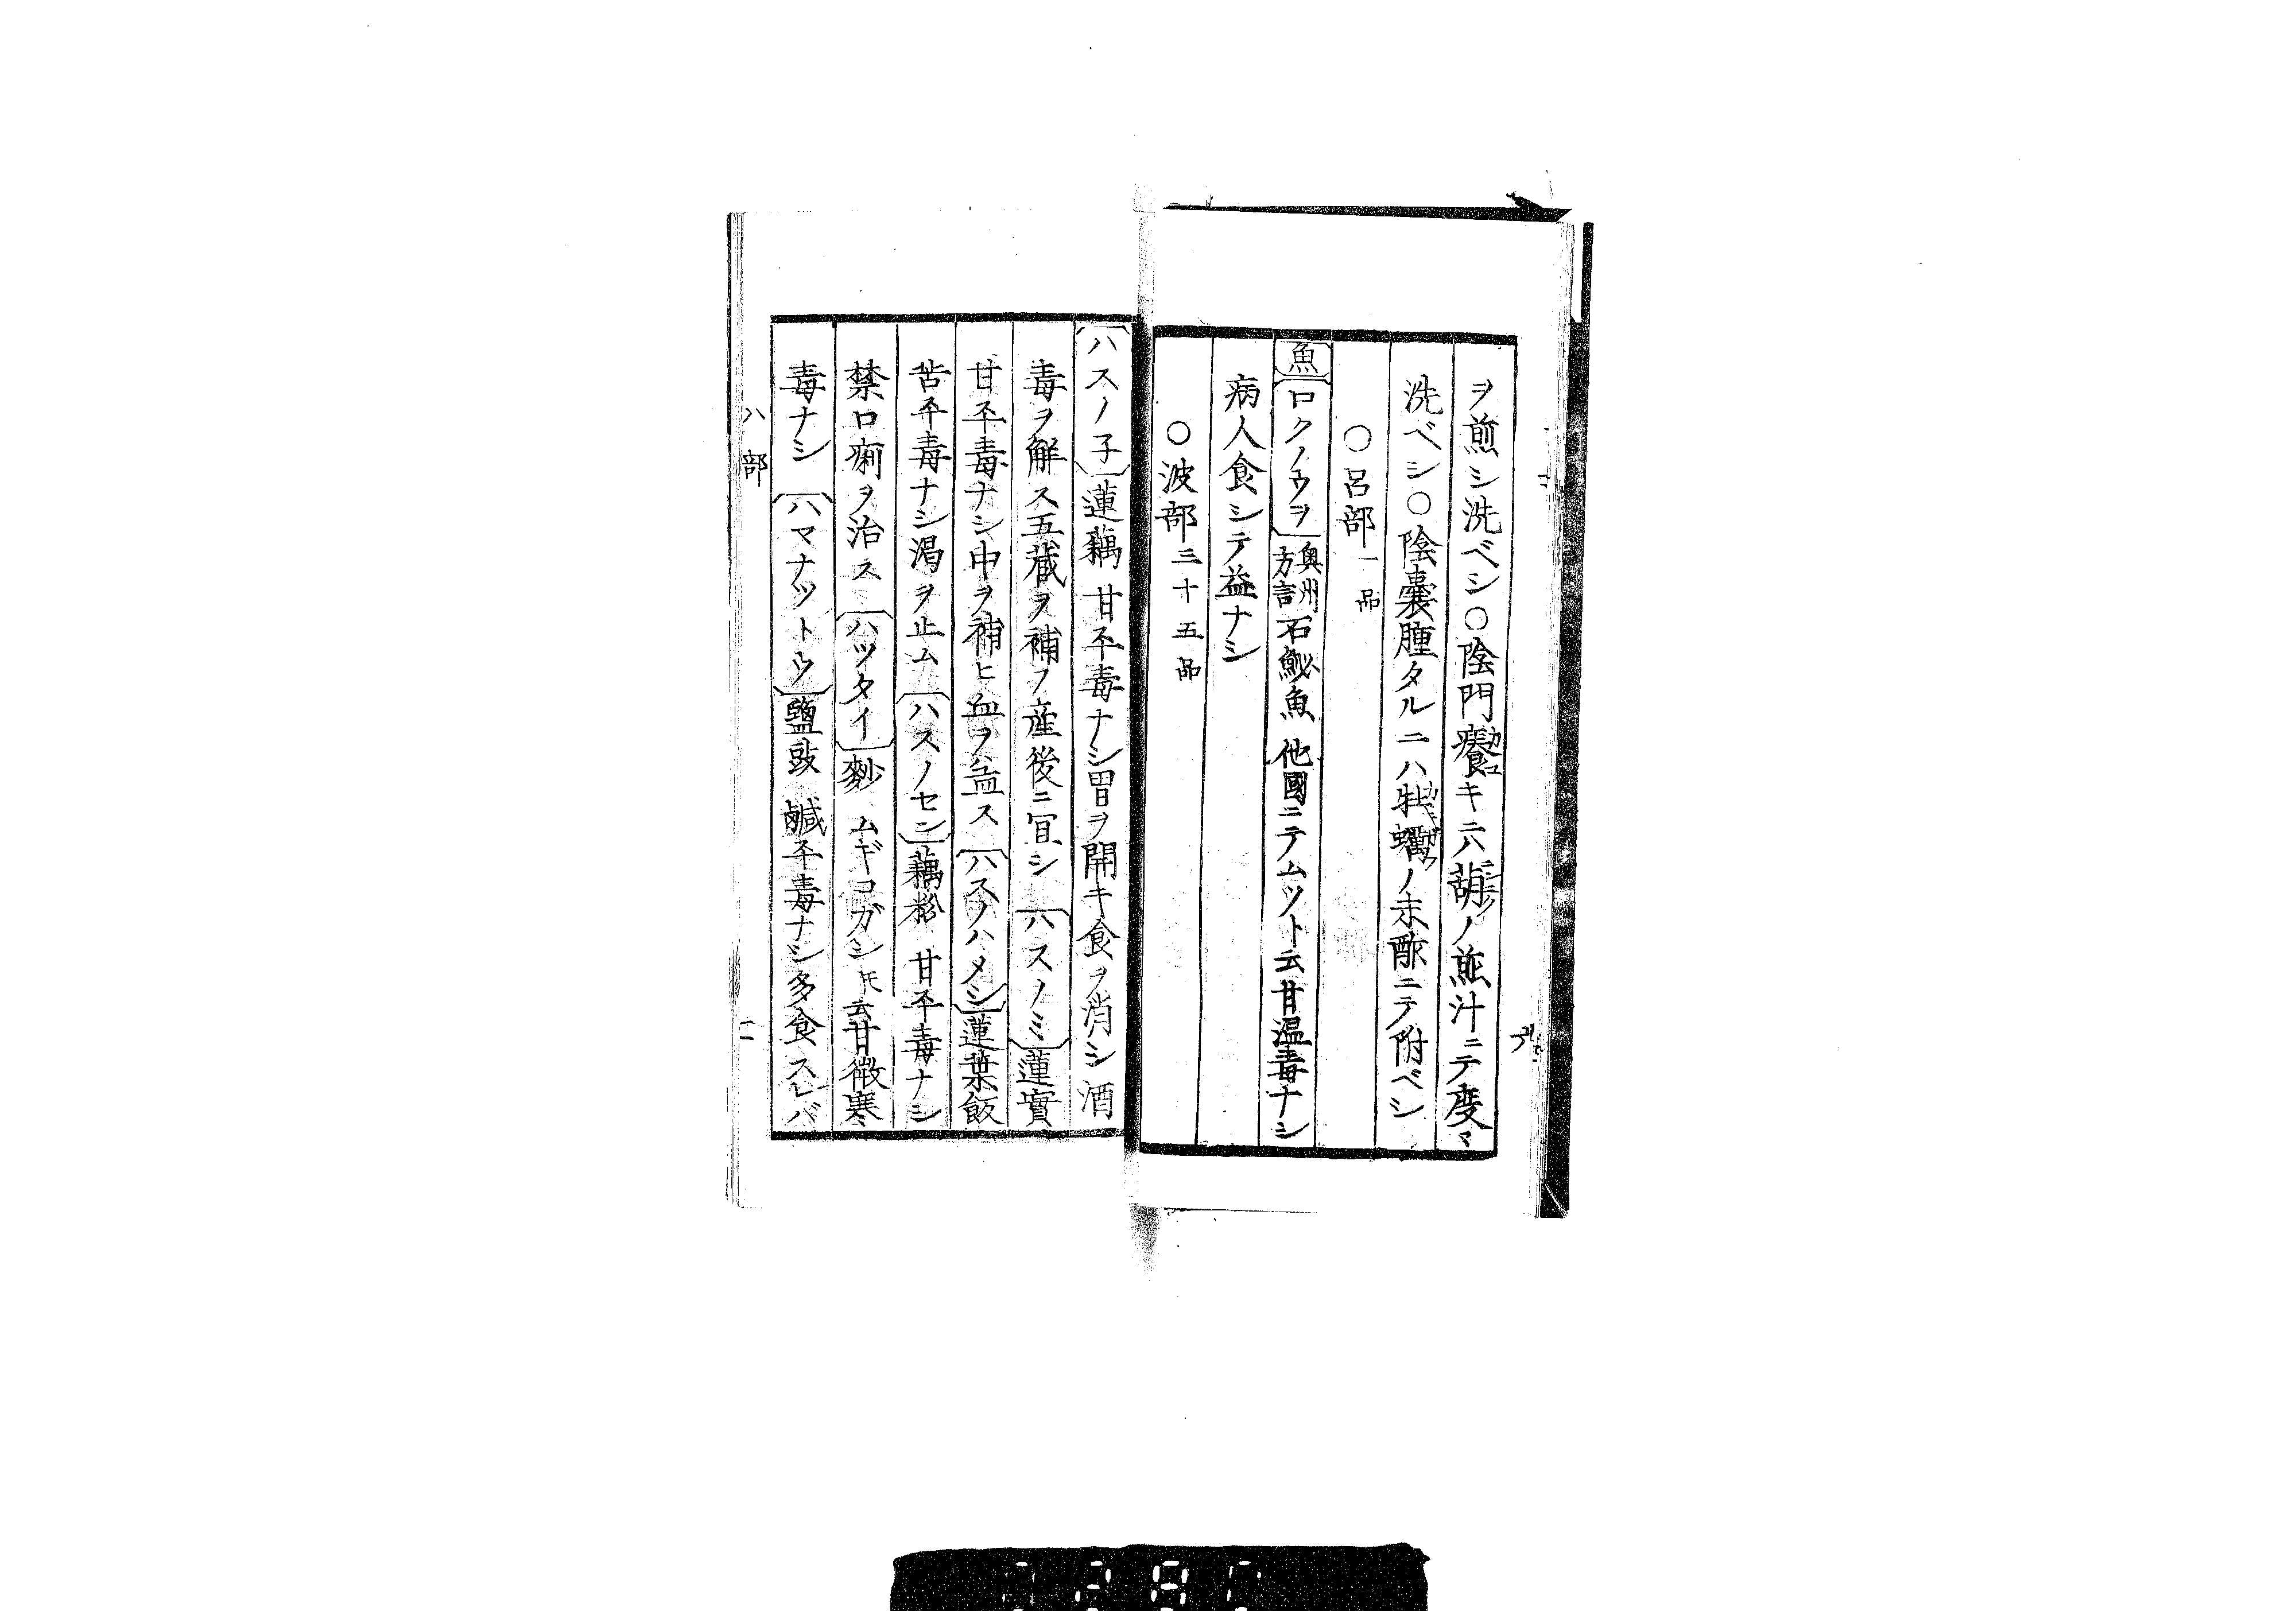 ヲ煎シ洗ベシ○陰門癢カユキニハ葫ニンニクノ煎汁ニテ度々
洗ベシ○陰囊腫タルニハ牡蠣ノ末酢ニテ附ベシ
○呂部 一品
魚 ロクノウヲ 奥州方言 石鮅魚 他國ニテムツト云甘温毒ナシ
病人食シテ益ナシ
○波部 三十五品
ハスノ子 蓮藕 甘平毒ナシ胃ヲ開キ食ヲ消シ酒
毒ヲ解ス五藏ヲ補フ産後ニ宜シ ハスノミ 蓮實
甘平毒ナシ中ヲ補ヒ血ヲ益ス ハスノハメシ 蓮葉飯
苦平毒ナシ渇ヲ止ム ハスノセン 藕粉 甘平毒ナシ
禁口痢ヲ治ス ハツタイ 麨 ムギコガシ圧云甘微寒
毒ナシ ハマナツトウ 鹽豉 鹹平毒ナシ多食スレバ
ハ部 二